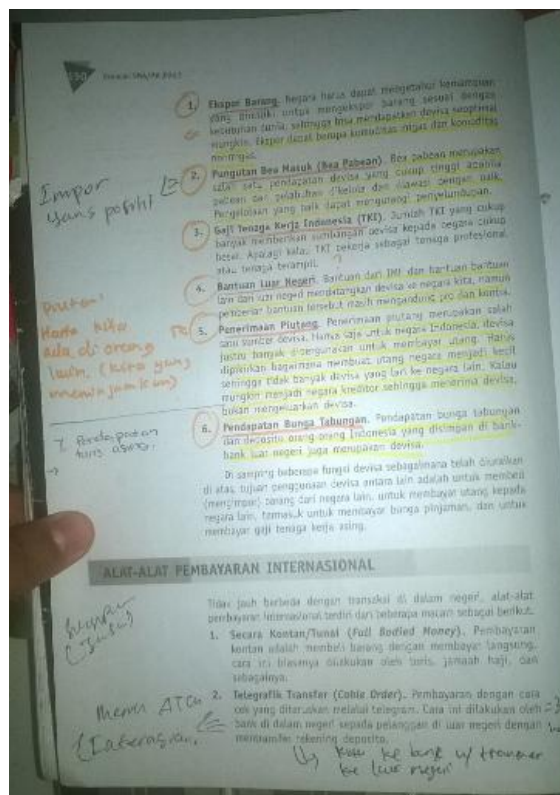 150
1. Ekspor Barang. Negara harus dapat mengetahui kemampuan
yang dimiliki untuk mengekspor barang sesuai dengan
kebutuhan dunia, sehingga bisa mendapatkan devisa seoptimal
mungkin. Ekspor dapat berupa komoditas migas dan komoditas
nonmigas.
Impor
yang positif
2. Pungutan Bea Masuk (Bea Pabean). Bea pabean merupakan
salah satu pendapatan devisa yang cukup tinggi apabila
pabean dan pelabuhan dikelola dan diawasi dengan baik.
Pengelolaan yang baik dapat mengurangi penyelundupan.
3. Gaji Tenaga Kerja Indonesia (TKI). Jumlah TKI yang cukup
banyak memberikan sumbangan devisa kepada negara cukup
besar. Apalagi kalau TKI bekerja sebagai tenaga profesional
atau tenaga terampil.
4. Bantuan Luar Negeri. Bantuan dari IMF dan bantuan-bantuan
lain dari luar negeri mendatangkan devisa ke negara kita, namun
pemberian bantuan tersebut masih mengandung pro dan kontra.
Harta kita
ada di orang
lain. (kita yang
meminjamkan)
5. Penerimaan Piutang. Penerimaan piutang merupakan salah
satu sumber devisa. Hanya saja untuk negara Indonesia, devisa
justru banyak digunakan untuk membayar utang. Harus
dipikirkan bagaimana membuat utang negara menjadi kecil
sehingga tidak banyak devisa yang lari ke negara lain. Kalau
mungkin menjadi negara kreditor sehingga menerima devisa,
bukan mengeluarkan devisa.
7. Pendapatan
turis asing.
6. Pendapatan Bunga Tabungan. Pendapatan bunga tabungan
dan deposito orang-orang Indonesia yang disimpan di bank-
bank luar negeri juga merupakan devisa.
Di samping beberapa fungsi devisa sebagaimana telah diuraikan
di atas, tujuan penggunaan devisa antara lain adalah untuk membeli
(mengimpor) barang dari negara lain, untuk membayar utang kepada
negara lain, termasuk untuk membayar bunga pinjaman, dan untuk
membayar gaji tenaga kerja asing.
ALAT-ALAT PEMBAYARAN INTERNASIONAL
Tidak jauh berbeda dengan transaksi di dalam negeri, alat-alat
pembayaran internasional terdiri dari beberapa macam sebagai berikut.
1. Secara Kontan/Tunai (Full Bodied Money). Pembayaran
kontan adalah membeli barang dengan membayar langsung,
cara ini biasanya dilakukan oleh turis, jamaah haji, dan
sebagainya.
2. Telegrafik Transfer (Cable Order). Pembayaran dengan cara
cek yang diteruskan melalui telegram. Cara ini dilakukan oleh
bank di dalam negeri kepada pelanggan di luar negeri dengan
mentransfer rekening deposito.
ke bank w/ transfer
ke luar negeri